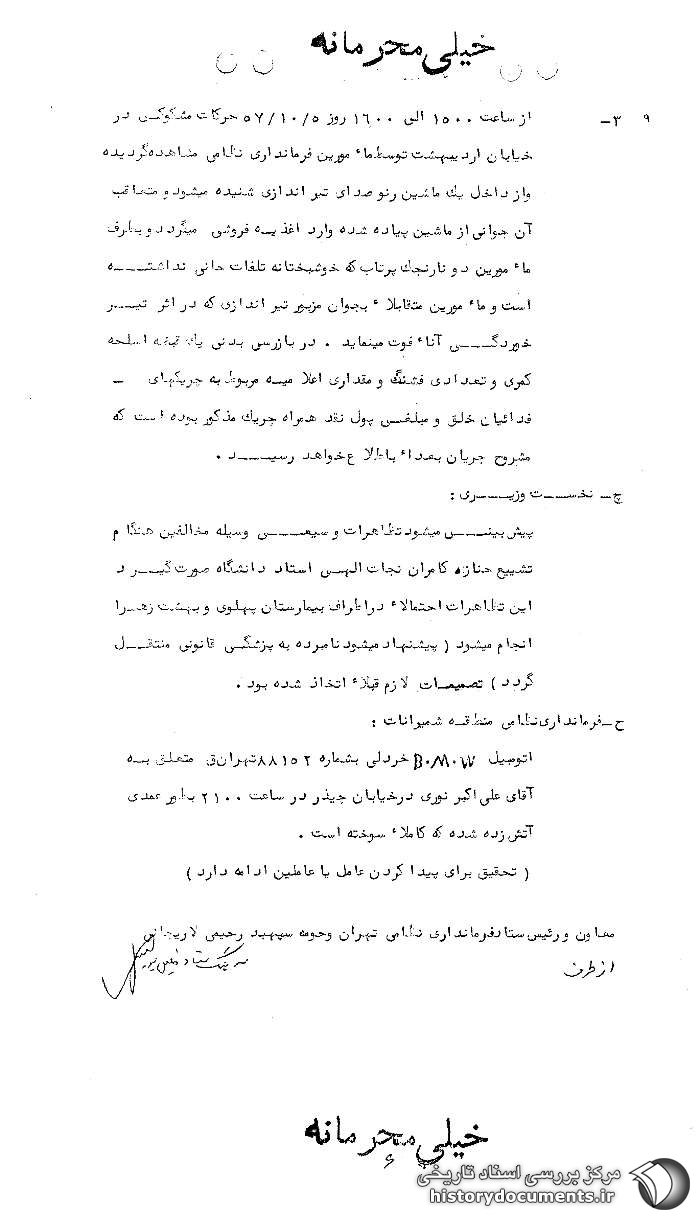 خیلی محرمانه
۹ ۳- از ساعت ۱۵۰۰ الی ۱۶۰۰ روز ۵۷/۱۰/۵ حرکات مشکوکی در
خیابان اردیبهشت توسط مأمورین فرمانداری نظامی مشاهده گردیده
و از داخل یک ماشین رنو صدای تیراندازی شنیده میشود و متعاقب
آن جوانی از ماشین پیاده شده وارد اغذیه فروشی میگردد و بطرف
مأمورین دو نارنجک پرتاب که خوشبختانه تلفات جانی نداشته
است و مأمورین متقابلاً بجوان مزبور تیراندازی که در اثر تیر
خوردگی آناً فوت مینماید . در بازرسی بدنی یک قبضه اسلحه
کمری و تعدادی فشنگ و مقداری اعلامیه مربوط به چریکهای -
فدائیان خلق و مبلغی پول نقد همراه چریک مذکور بوده است که
مشروح جریان بعداً باطلاع خواهد رسید .
چ- نخست وزیری :
پیش بینی میشود تظاهرات وسیعی وسیله مخالفین هنگام
تشییع جنازه کامران نجات الهی استاد دانشگاه صورت گیرد
این تظاهرات احتمالاً در اطراف بیمارستان پهلوی و بهشت زهرا
انجام میشود ( پیشنهاد میشود نامبرده به پزشگی قانونی منتقل
گردد ) تصمیمات لازم قبلاً اتخاذ شده بود .
ح- فرمانداری نظامی منطقه شمیرانات :
اتومبیل B.M.W خردلی بشماره ۸۸۱۵۲ تهران ق متعلق به
آقای علی اکبر نوری در خیابان چیذر در ساعت ۲۱۰۰ بطور عمدی
آتش زده شده که کاملاً سوخته است .
( تحقیق برای پیدا کردن عامل یا عاملین ادامه دارد )
معاون و رئیس ستاد فرمانداری نظامی تهران و حومه سپهبد رحیمی لاریجانی
از طرف سرهنگ ستاد
خیلی محرمانه
مرکز بررسی اسناد تاریخی
historydocuments.ir